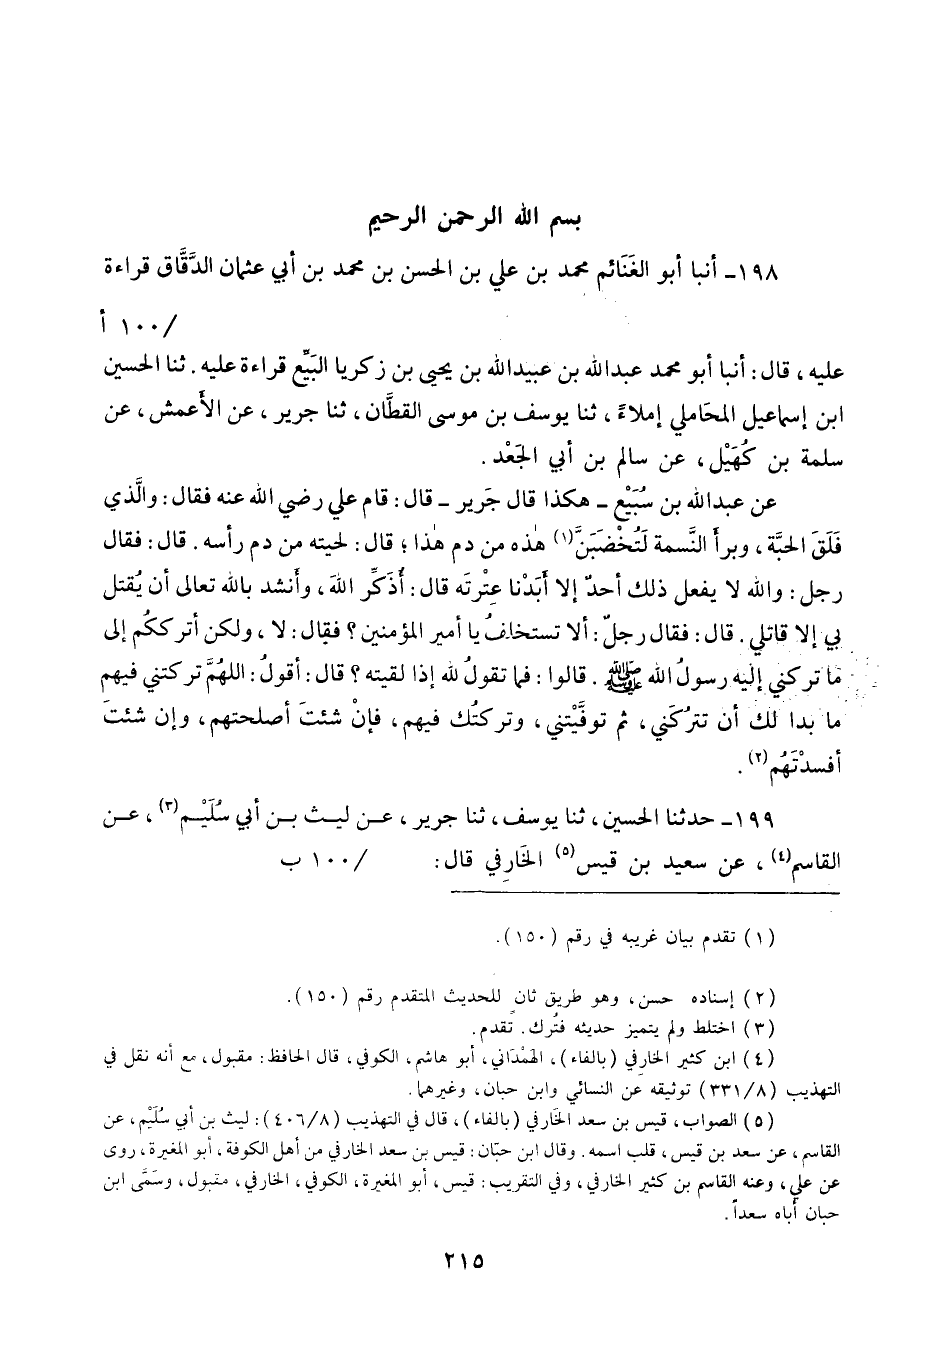 بسم الله الرحمن الرحيم
١٩٨ـ أنبا أبو الغَنَائم محمد بن علي بن الحسن بن محمد بن أبي عثمان الدَّقَّاق قراءة
/١٠٠ أ
عليه ، قال : أنبا أبو محمد عبدالله بن عبيدالله بن يحيى بن زكريا البَيِّع قراءة عليه . ثنا الحسين
ابن إسماعيل المحَاملي إملاءً ، ثنا يوسف بن موسى القطَّان ، ثنا جرير ، عن الأَعمش ، عن
سلمة بن كُهَيْل ، عن سالم بن أبي الجَعْد .
عن عبدالله بن سُبَيْع ـ هكذا قال جَرير ـ قال : قام علي رضي الله عنه فقال : والَّذي
فَلَقَ الحبَّة ، وبرأَ النَّسمة لَتُخْضَبَنَّ(١) هٰذه من دم هٰذا ؛ قال : لحيته من دم رأسه . قال : فقال
رجل : والله لا يفعل ذلك أحدٌ إلا أَبَدْنا عِتْرتَه قال : أُذَكِّر اللهَ ، وأَنشد بالله تعالى أن يُقتل
بي إلا قاتلي . قال : فقال رجلٌ : ألا تستخلفُ يا أمير المؤمنين ؟ فقال : لا ، ولكن أترككُم إلى
مَا تركني إليه رسولُ الله ﷺ . قالوا : فما تقولُ لله إذا لقيته ؟ قال : أقولُ : اللهُمَّ تركتني فيهم
ما بدا لك أن تترُكَني ، ثم توفَّيْتني ، وتركتُك فيهم ، فإنْ شئتَ أصلحتهم ، وإن شئتَ
أفسدْتَهُم(٢) .
١٩٩ـ حدثنا الحسين ، ثنا يوسف ، ثنا جرير ، عن ليث بن أبي سُلَيْم(٣) ، عن
القاسم(٤) ، عن سعيد بن قيس(٥) الخَارفي قال : /١٠٠ ب
(١) تقدم بيان غريبه في رقم (١٥٠) .
(٢) إسناده حسن ، وهو طريق ثانٍ للحديث المتقدم رقم (١٥٠) .
(٣) اختلط ولم يتميز حديثه فتُرك . تقدم .
(٤) ابن كثير الخارفي (بالفاء) ، الهمْدَاني ، أبو هاشم ، الكوفي ، قال الحافظ : مقبول ، مع أنه نقل في
التهذيب (٣٣١/٨) توثيقه عن النسائي وابن حبان ، وغيرهما .
(٥) الصواب ، قيس بن سعد الخارفي (بالفاء) ، قال في التهذيب (٤٠٦/٨) : ليث بن أبي سُلَيْم ، عن
القاسم ، عن سعد بن قيس ، قلب اسمه . وقال ابن حبّان : قيس بن سعد الخارفي من أهل الكوفة ، أبو المغيرة ، روى
عن علي ، وعنه القاسم بن كثير الخارفي ، وفي التقريب : قيس ، أبو المغيرة ، الكوفي ، الخارفي ، مقبول ، وسَمَّى ابن
حبان أباه سعداً .
٢١٥